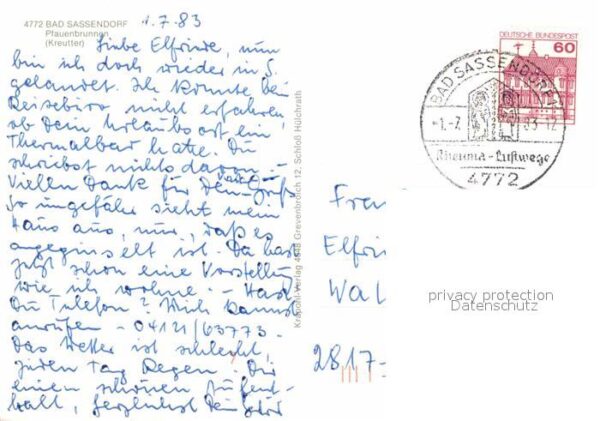 4772 BAD SASSENDORF
Pfauenbrunnen
(Kreutter)
1.7.83
Liebe Elfriede, nun
bin ich doch wieder in S.
gelandet. Ich konnte beim
Reisebüro nicht erfahren
ob Dein Urlaubsort ein
Thermalbad hatte. Du
schriebst nichts davon –
Vielen Dank für Dein Gruß
So ungefähr sieht mein
Haus aus, nur, daß es
angeginselt ist. Du hast
jetzt schon eine Vorstellung
wie ich wohne. – Hast
Du Telefon? Mich kannst
anrufen – 04121/63773.
Das Wetter ist schlecht,
jeden Tag Regen. Dir
einen schönen Aufent-
halt, herzlichst Dein
Krapohl-Verlag 4048 Grevenbroich 12, Schloß Hülchrath
DEUTSCHE BUNDESPOST
60
BAD SASSENDORF
-1.-7. 83-12
Rheuma - Luftwege
4772
Frau
Elfri
Wal
2817-
privacy protection
Datenschutz